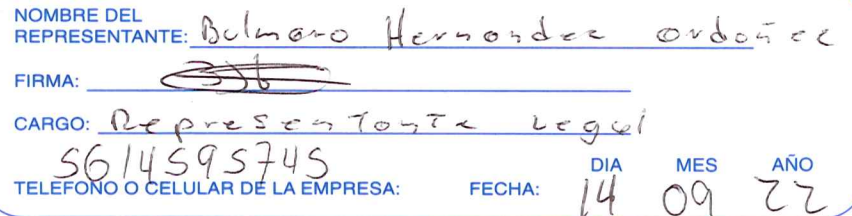 NOMBRE DEL
REPRESENTANTE: Belmaro Hernandez ordoñez
FIRMA:
CARGO: Representante Legal
5614595745
TELEFONO O CELULAR DE LA EMPRESA: FECHA: DIA 14 MES 09 AÑO 22